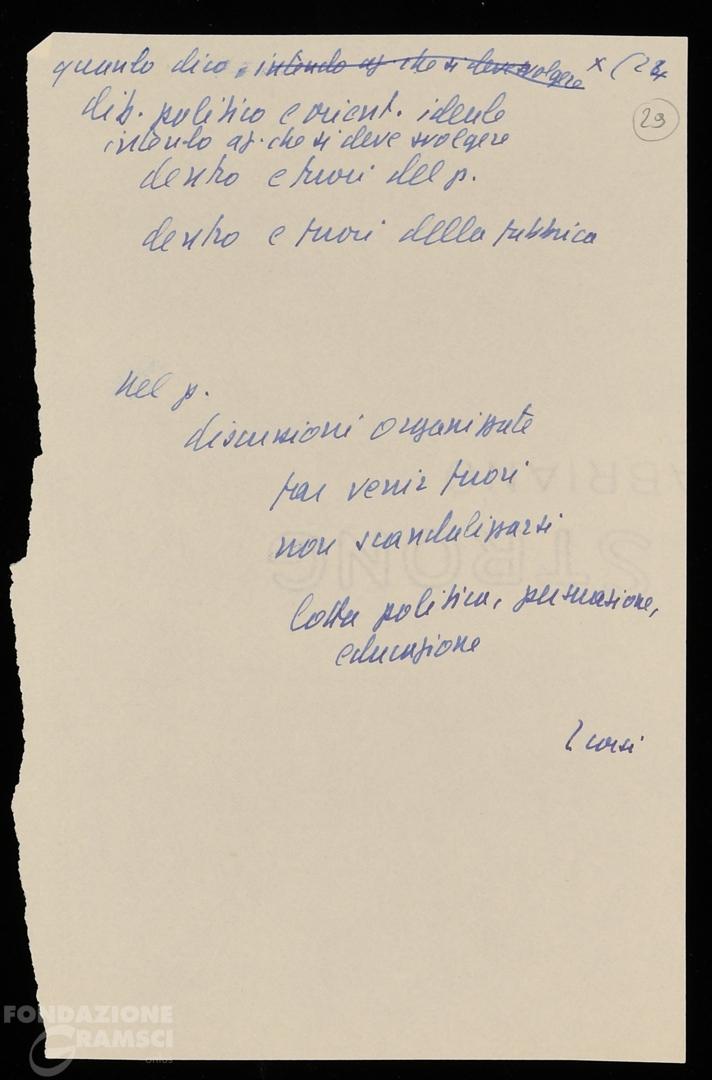 quando dico, intendo az che si deve svolgere x (28
29
dib. politico e orient. ideale
intendo az. che si deve svolgere
dentro e fuori del p.
dentro e fuori della fabbrica
nel p.
discussioni organizzate
far venir fuori
non scandalizzarsi
lotta politica, persuasione,
educazione
corsi
FABRIANO
STRONG
FONDAZIONE
GRAMSCI
onlus